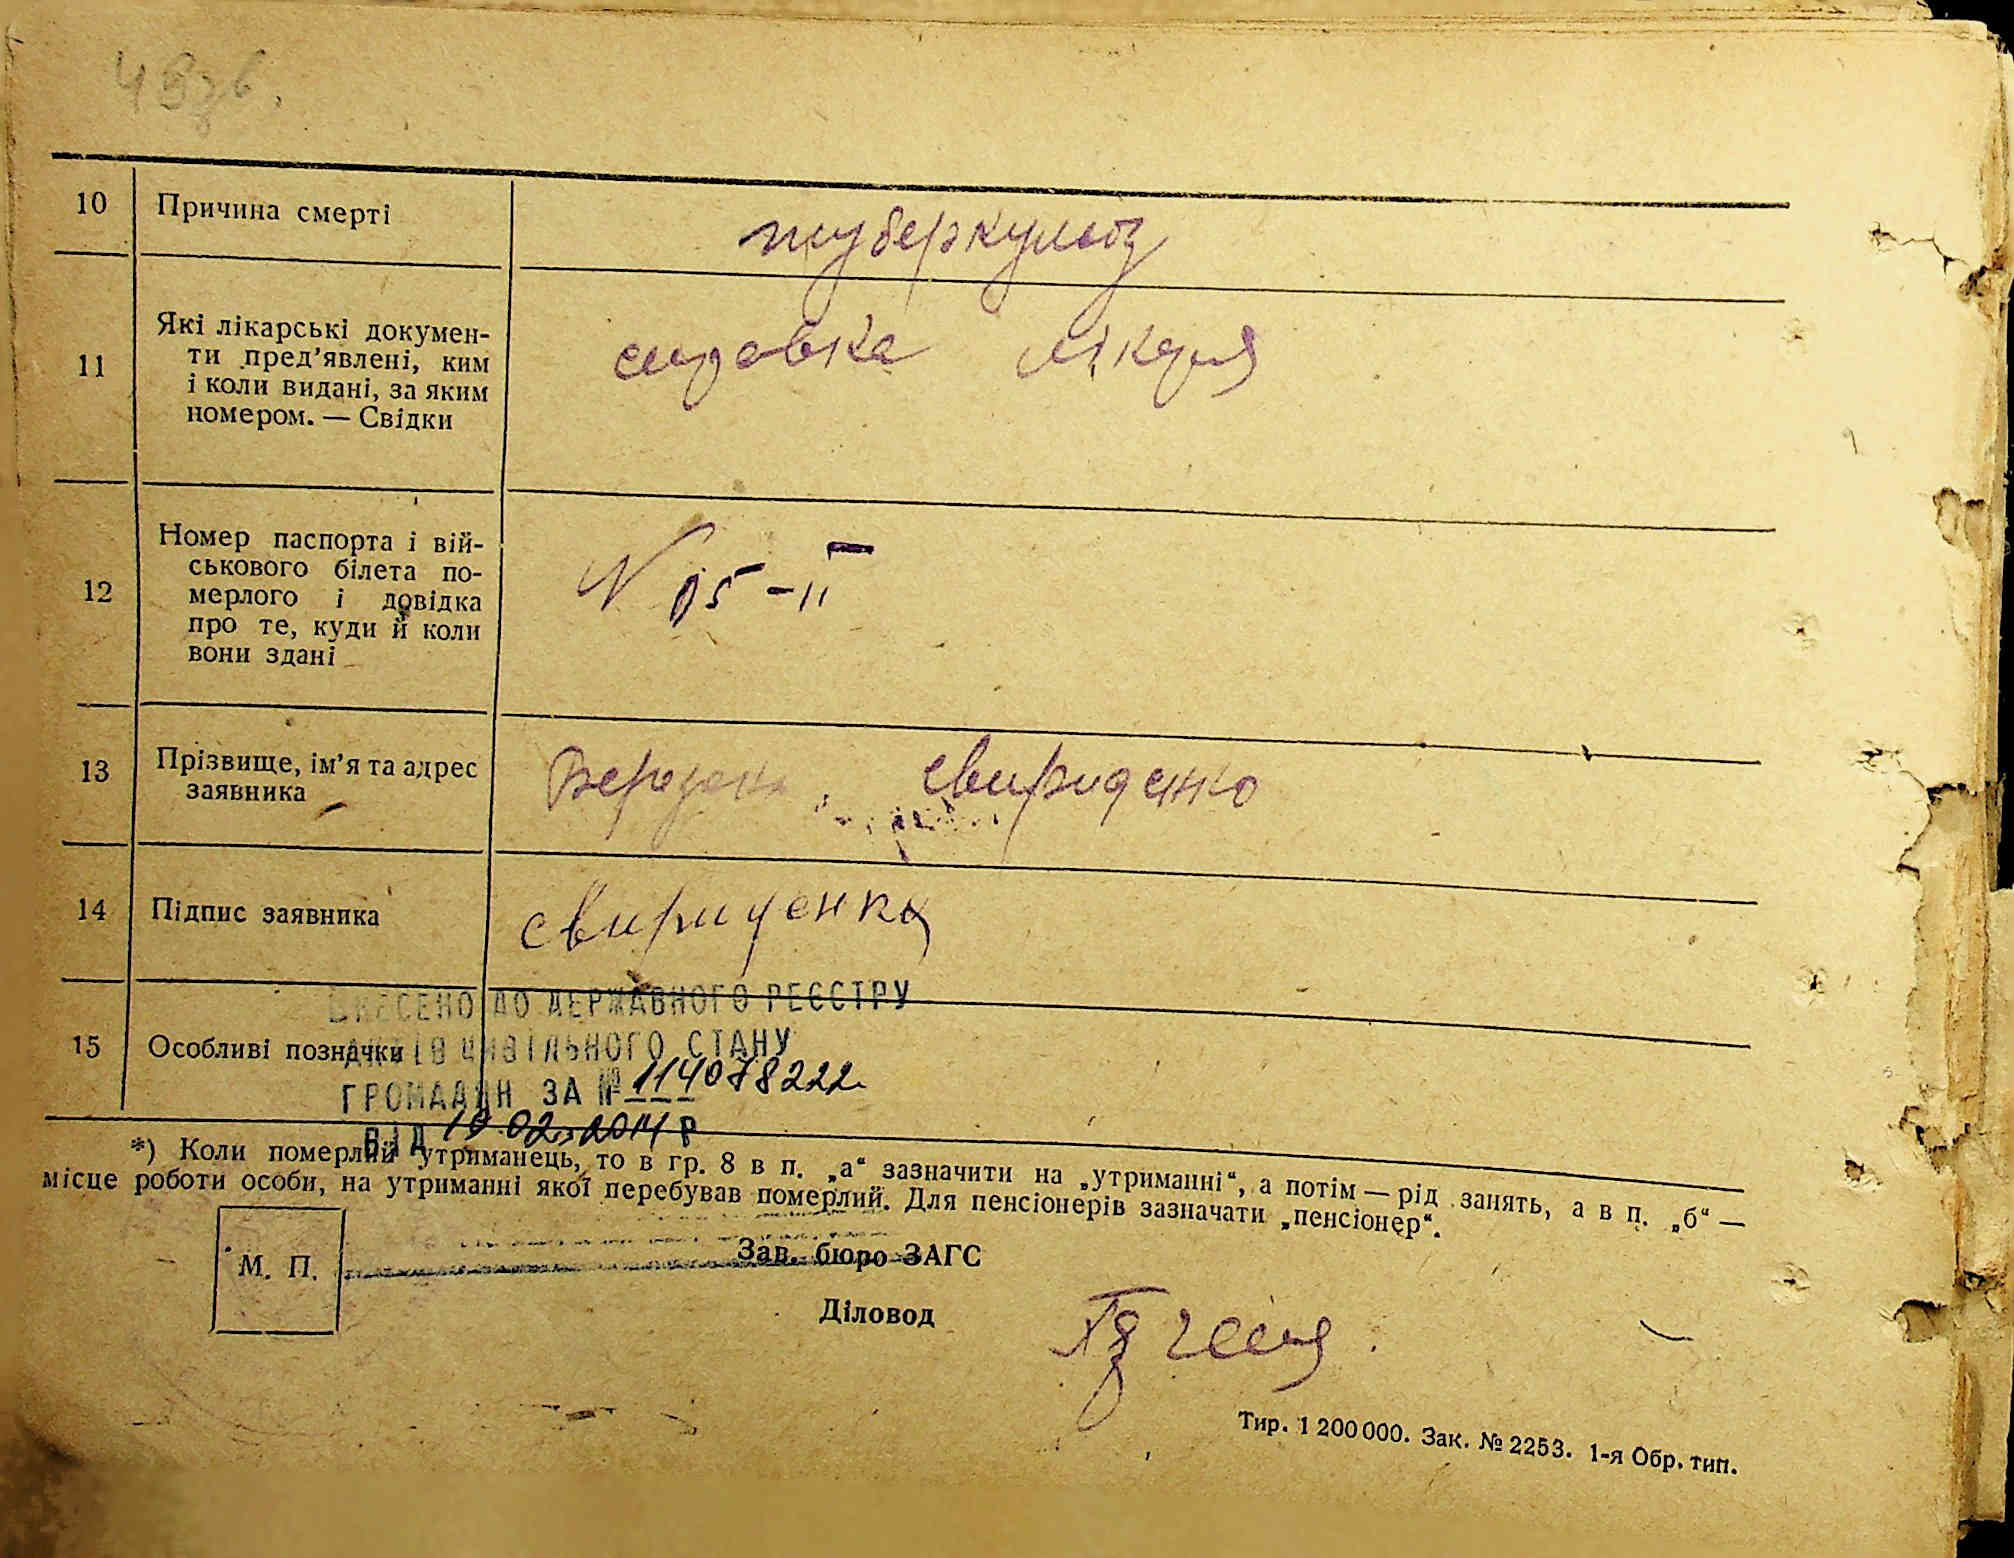 49зв.
10 Причина смерті туберкульоз
11 Які лікарські докумен-
ти пред’явлені, ким
і коли видані, за яким
номером. — Свідки
справка лікаря
12 Номер паспорта і вій-
ськового білета по-
мерлого і довідка
про те, куди й коли
вони здані
N
13 Прізвище, ім’я та адрес
заявника
Свириденко
14 Підпис заявника Свириденко
ВНЕСЕНО ДО ДЕРЖАВНОГО РЕЄСТРУ
15 Особливі позначки
АКТІВ ЦИВІЛЬНОГО СТАНУ
ГРОМАДЯН ЗА № 114078222
ВІД 10.02.2014 Р
*) Коли померлий утриманець, то в гр. 8 в п. „а“ зазначити на „утриманні“, а потім — рід занять, а в п. „б“ —
місце роботи особи, на утриманні якої перебував померлий. Для пенсіонерів зазначати „пенсіонер“.
М. П.
Зав. бюро ЗАГС
Діловод
Тир. 1 200 000. Зак. № 2253. 1-я Обр. тип.